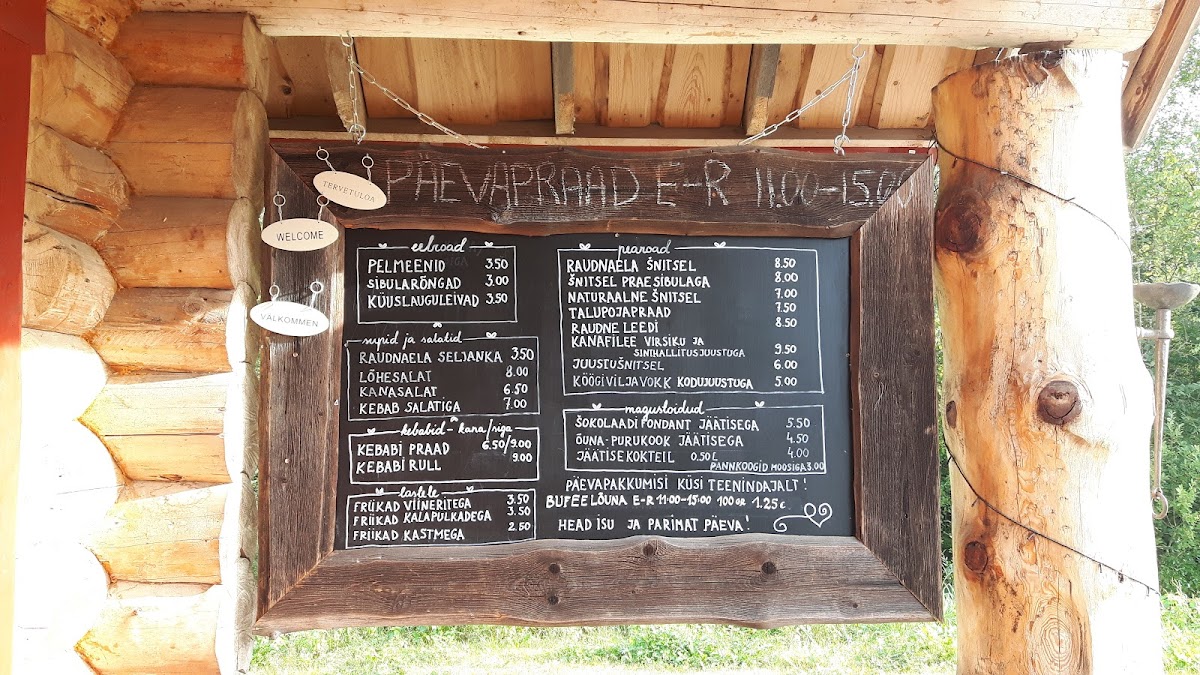 PÄEVAPRAAD E-R 11.00-15.00
TERVETULOA
WELCOME
VÄLKOMMEN
eelroad
PELMEENID 3.50
SIBULARÕNGAD 3.00
KÜÜSLAUGULEIVAD 3.50
supid ja salatid
RAUDNAELA SELJANKA 3.50
LÕHESALAT 8.00
KANASALAT 6.50
KEBAB SALATIGA 7.00
kebabid - kana/siga
KEBABI PRAAD 6.50/9.00
KEBABI RULL 9.00
lastele
FRIIKAD VIINERITEGA 3.50
FRIIKAD KALAPULKADEGA 3.50
FRIIKAD KASTMEGA 2.50
pearoad
RAUDNAELA ŠNITSEL 8.50
ŠNITSEL PRAESIBULAGA 8.00
NATURAALNE ŠNITSEL 7.00
TALUPOJAPRAAD 7.50
RAUDNE LEEDI 8.50
KANAFILEE VIRSIKU JA
SINIHALLITUSJUUSTUGA 9.50
JUUSTUŠNITSEL 6.00
KÖÖGIVILJAVOKK KODUJUUSTUGA 5.00
magustoidud
ŠOKOLAADI FONDANT JÄÄTISEGA 5.50
ÕUNA-PURUKOOK JÄÄTISEGA 4.50
JÄÄTISEKOKTEIL 0.50 L 4.00
PANNKOOGID MOOSIGA 3.00
PÄEVAPAKKUMISI KÜSI TEENINDAJALT!
BUFEELÕUNA E-R 11:00-15:00 100GR 1.25€
HEAD ISU JA PARIMAT PÄEVA!